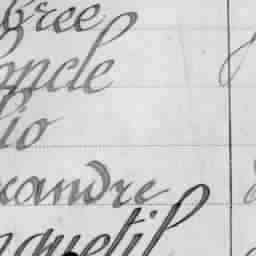 bree
oncle
lio
xandre
nquetil